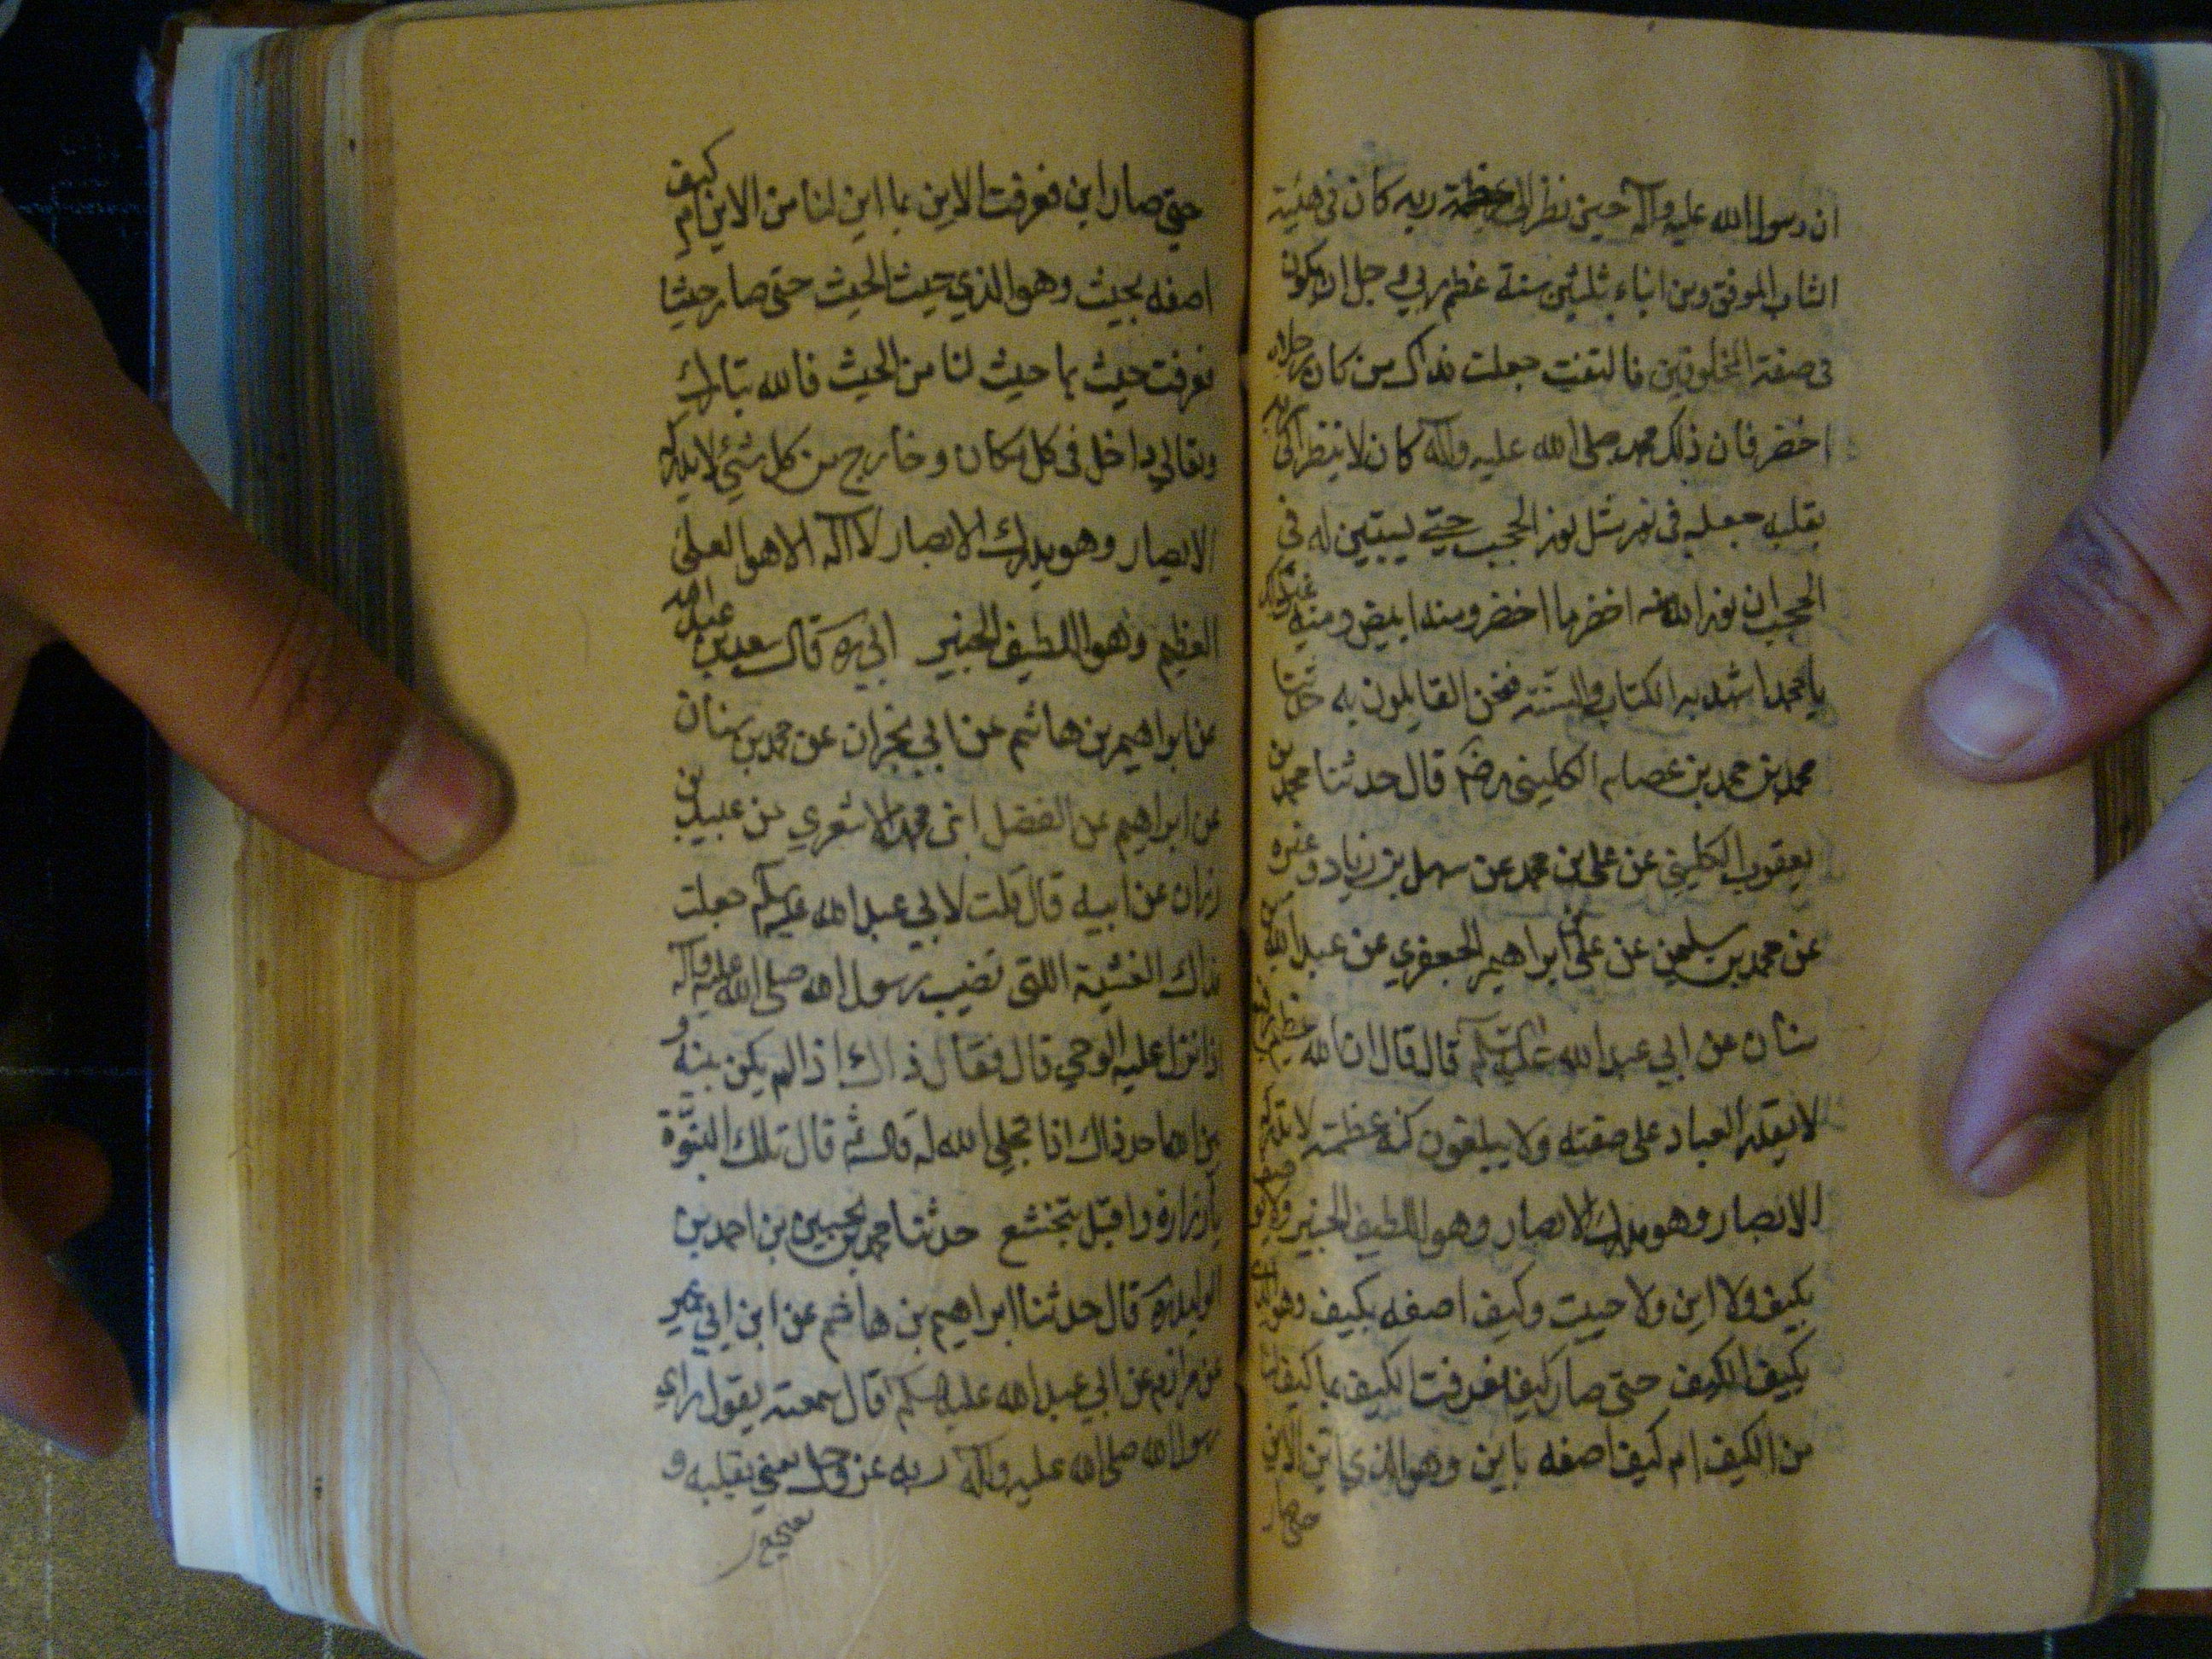 ان رسول الله عليه وآله حين نظر الى عظمة ربه كان فى هيئة
الشاب الموفق ومن ابناء ثلثين سنة عظم ربي و جل ان يكون
فى صفة المخلوقين قال لتفت جعلت فداك من كان رجلاه
اخضر قان ذلك محمد صلى الله عليه وآله كان لا ينظر الى ربه
بقلبه جعله فى نور مثل نور الحجب حتى ليبتين له فى
الحجب ان نور الله منه اخضر ما اخضر ومنه ابيض ومنه غير ذلك
يا محمد ا شهد به الكتاب والسنة فنحن القايلون به حدثنا
محمد بن محمد بن عصام الكلينى رضه قال حدثنا محمد بن
يعقوب الكلينى عن على بن محمد عن سهل بن زياد وغيره
عن محمد بن سليمن عن على بن ابراهيم الجعفري عن عبد الله بن
سنان عن ابي عبد الله عليه السلم قال قال ان الله عظيم رفيع
لا يقدر العباد على صفته ولا يبلغون كنه عظمته لا تدركه
الابصار وهو يدرك الابصار وهو اللطيف الخبير ولا يوصف
بكيف ولا اين ولا حيث وكيف اصفه بكيف وهو الذي
كيف الكيف حتى صار كيف فعرفت الكيف بما كيف لنا
من الكيف ام كيف اصفه باين وهو الذي اين الاين
حتى صار
حتى صار اين فعرفت الاين بما اين لنا من الاين ام كيف
اصفه بحيث وهو الذي حيث الحيث حتى صار حيثا
فعرفت حيث بما حيث لنا من الحيث فالله تبارك
وتعالى داخل فى كل مكان وخارج من كل شئ لا يدركه
الابصار وهو يدرك الابصار لا اله الا هو العلى
العظيم وهو اللطيف الخبير ابي ره قال سعد بن عبد الله
عن ابراهيم بن هاشم عن ابي نجران عن محمد بن سنان
عن ابراهيم عن الفضل ابن محمد الاشعري عن عبيد بن
زران عن ابيه قال قلت لابي عبد الله عليه سلم جعلت
فداك الغشية اللتى تصيب رسول الله صلى الله عليه وآله
اذا نزل عليه الوحي قال فقال ذاك اذا لم يكن بينه و
بين الله احد ذاك اذا تجلى الله له قال ثم قال تلك النبوّة
يا زرارة واقبل يتخشع حدثنا محمد بن الحسين بن احمد بن
الوليد ره قال حدثنا ابراهيم بن هاشم عن ابن ابي عمير
عن مرازم عن ابي عبد الله عليه السلم قال سمعته يقول راى
رسول الله صلى الله عليه وآله ربه عز وجل يعني بقلبه و